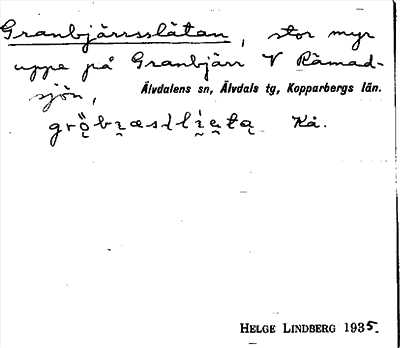 Granbjärrsslåtan, stor myr
uppe på Granbjärr V Rämad-
sjön,
Älvdalens sn, Älvdals tg, Kopparbergs län.
Kå.
HELGE LINDBERG 1935.